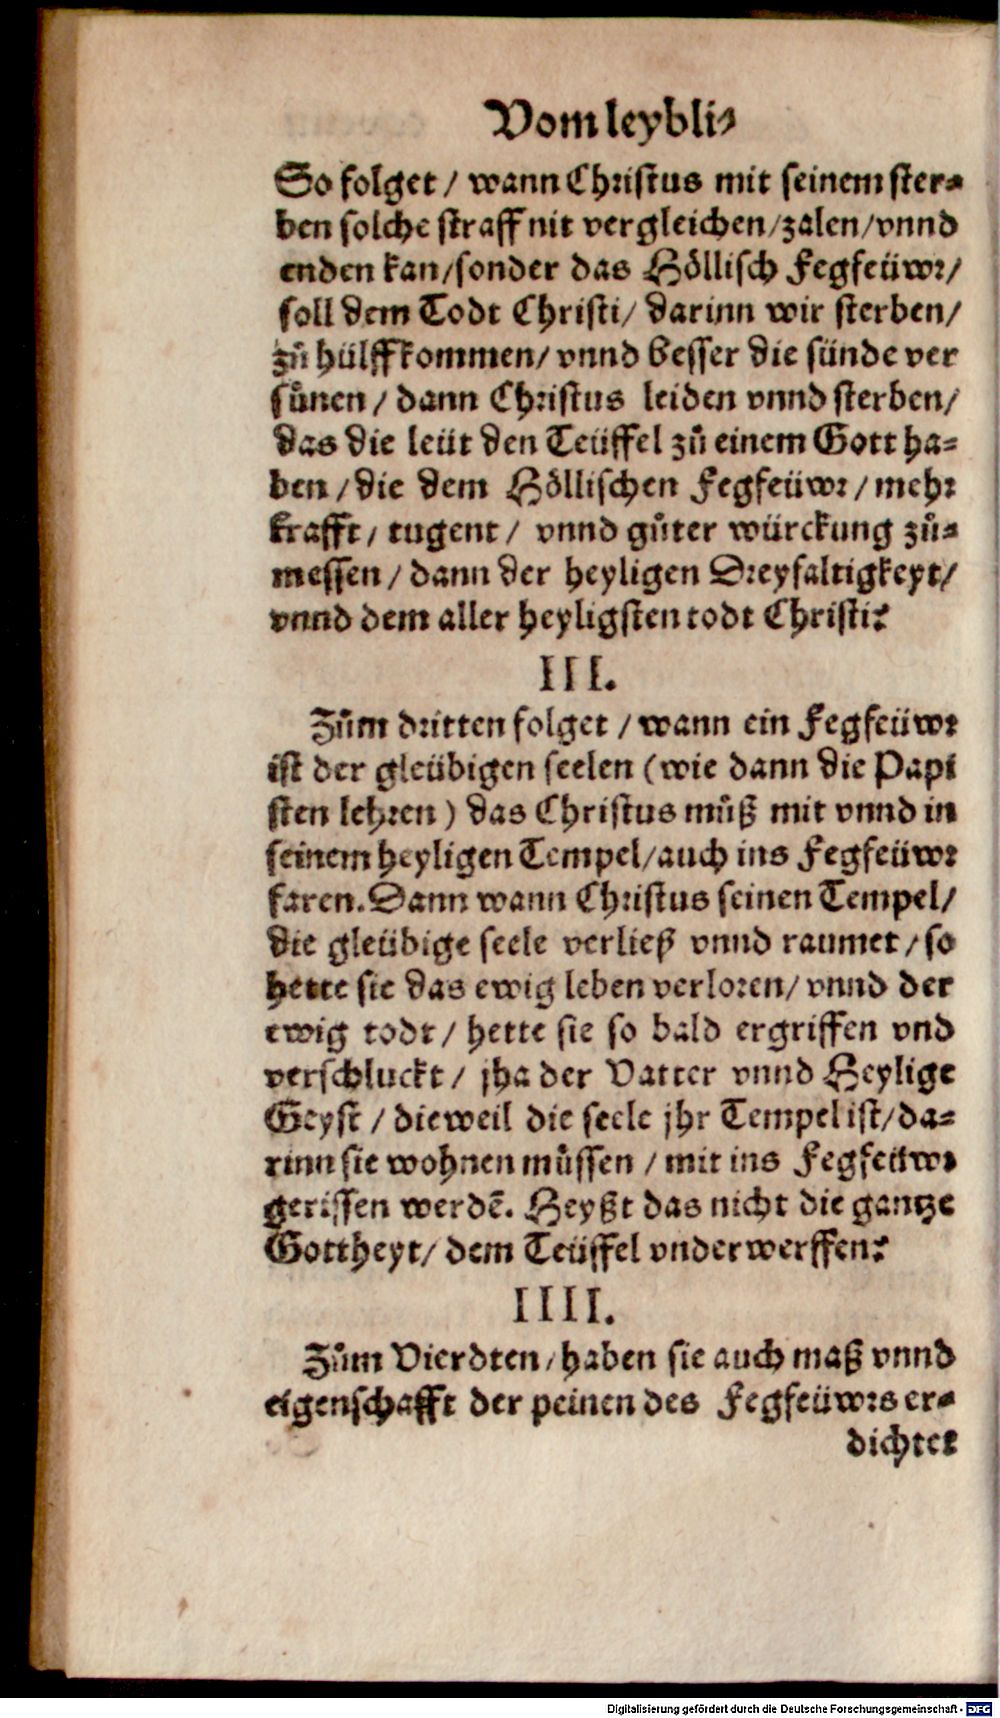 Vom leybli⸗
So folget / wann Christus mit seinem ster⸗
ben solche straff nit vergleichen/zalen/vnnd
enden kan/sonder das Höllisch Fegfeüwr/
soll dem Todt Christi/ darinn wir sterben/
zů hülff kommen/ vnnd besser die sünde ver
sůnen / dann Christus leiden vnnd sterben/
das die leüt den Teüffel zů einem Gott ha⸗
ben / die dem Höllischen Fegfeüwr / mehr
krafft / tugent / vnnd gůter würckung zů⸗
messen / dann der heyligen Dreyfaltigkeyt/
vnnd dem aller heyligsten todt Christi?
III.
Zům dritten folget / wann ein Fegfeüwr
ist der gleübigen seelen (wie dann die Papi
sten lehren) das Christus můß mit vnnd in
seinem heyligen Tempel/auch ins Fegfeüwr
faren. Dann wann Christus seinen Tempel/
die gleübige seele verließ vnnd raumet / so
hette sie das ewig leben verloren/ vnnd der
ewig todt / hette sie so bald ergriffen vnd
verschluckt / jha der Vatter vnnd Heylige
Geyst / dieweil die seele jhr Tempel ist/da⸗
rinn sie wohnen můssen / mit ins Fegfeüwr
gerissen werdē. Heyßt das nicht die gantze
Gottheyt/ dem Teüffel vnderwerffen?
IIII.
Zům Vierdten/haben sie auch maß vnnd
eigenschafft der peinen des Fegfeüwrs er⸗
dichtet
Digitalisierung gefördert durch die Deutsche Forschungsgemeinschaft - DFG